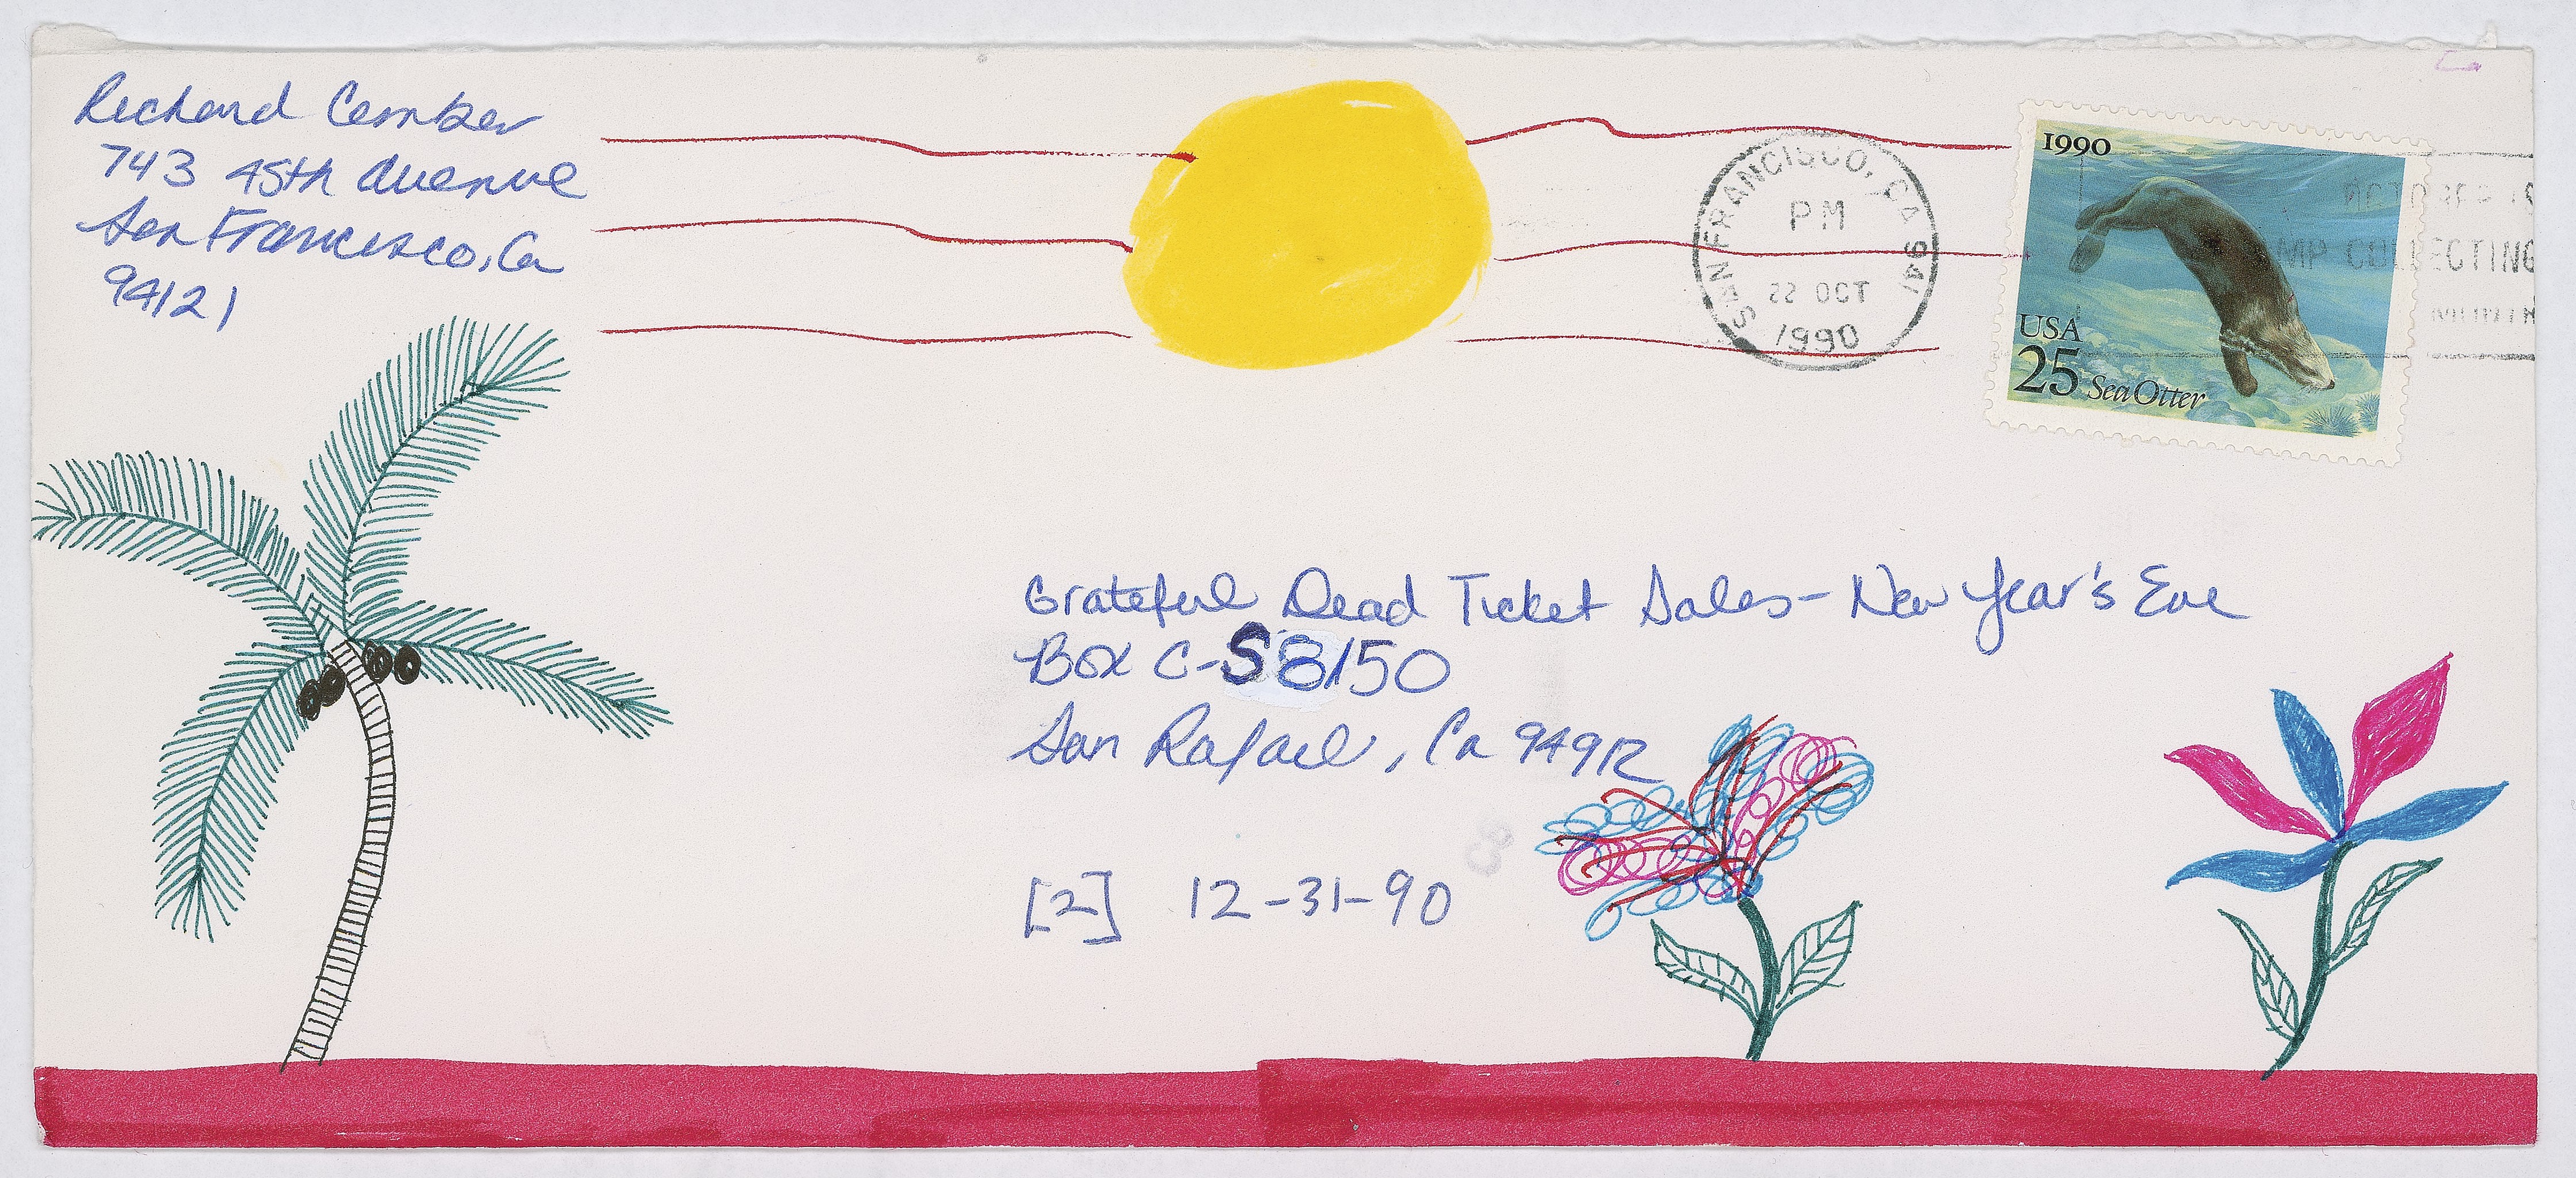 Richard Cember
743 45th Avenue
San Francisco, Ca
94121
SAN FRANCISCO, CA 941
PM
22 OCT
1990
1990
USA
25 Sea Otter
OCTOBER IS
MP COLLECTING
MONTH
Grateful Dead Ticket Sales - New Year's Eve
Box C-S8150
San Rafael, Ca 94912
[2] 12-31-90